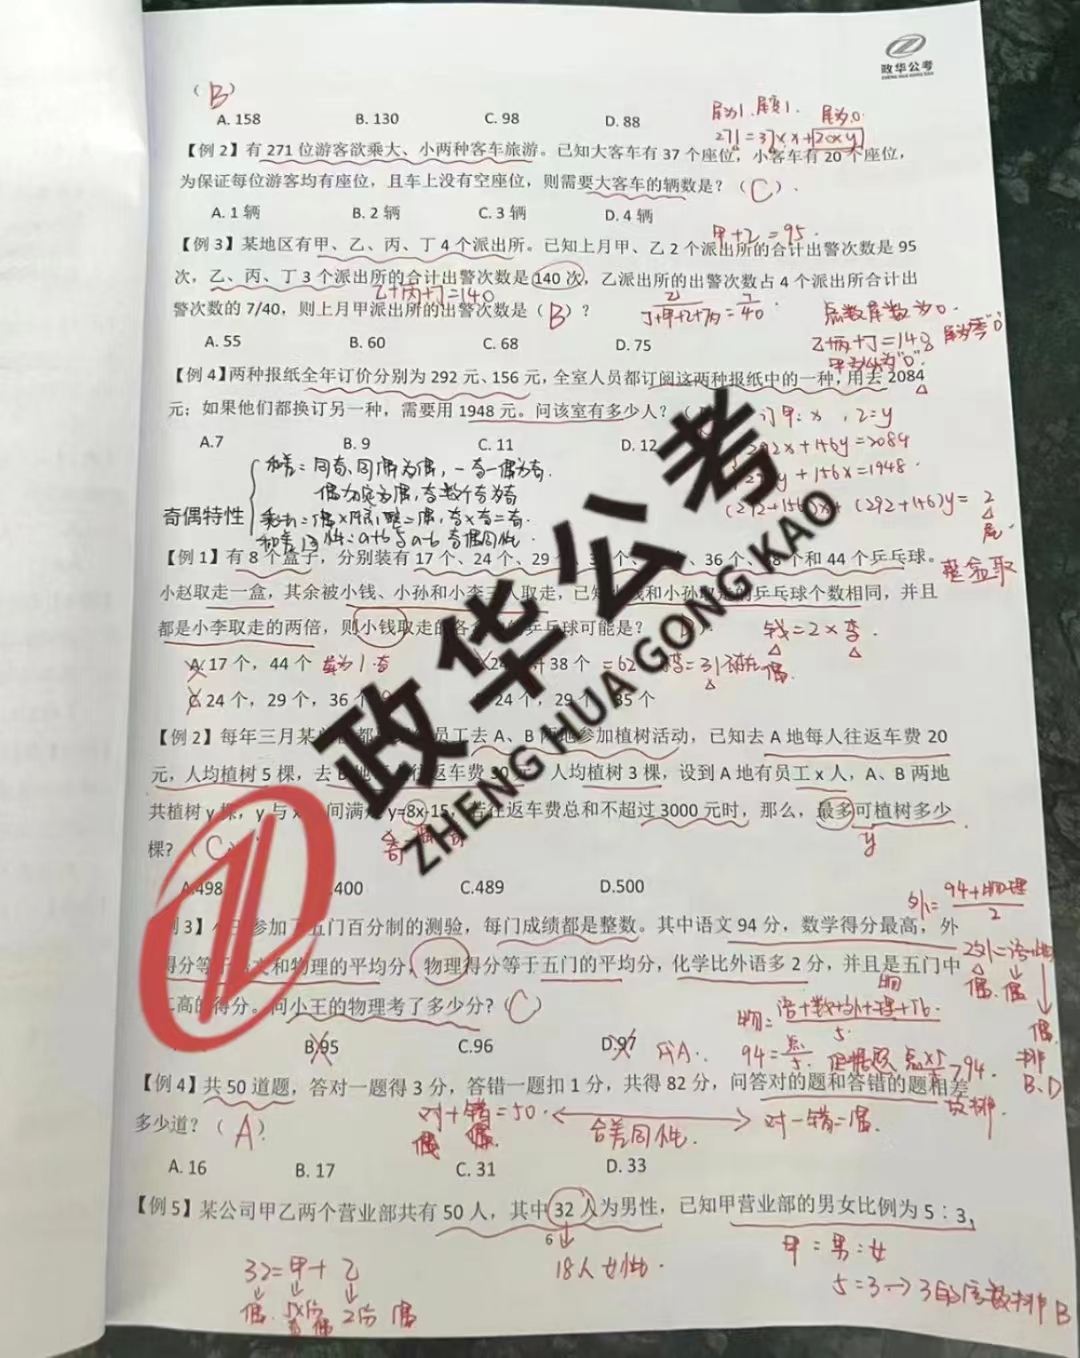 政华公考
ZHENG HUA GONG KAO
（B）
A. 158 B. 130 C. 98 D. 88
尾为1. 尾为1. 尾为0.
271=37×x+20×y
【例 2】有 271 位游客欲乘大、小两种客车旅游。已知大客车有 37 个座位，小客车有 20 个座位，
为保证每位游客均有座位，且车上没有空座位，则需要大客车的辆数是？（C）.
A. 1 辆 B. 2 辆 C. 3 辆 D. 4 辆
甲+乙=95.
【例 3】某地区有甲、乙、丙、丁 4 个派出所。已知上月甲、乙 2 个派出所的合计出警次数是 95
次，乙、丙、丁 3 个派出所的合计出警次数是 140 次，乙派出所的出警次数占 4 个派出所合计出
乙+丙+丁=140
警次数的 7/40，则上月甲派出所的出警次数是（B）？
乙/丁+甲+乙+丙=7/40.
尾数为0.
A. 55 B. 60 C. 68 D. 75
【例 4】两种报纸全年订价分别为 292 元、156 元，全室人员都订阅这两种报纸中的一种，用去 2084
元；如果他们都换订另一种，需要用 1948 元。问该室有多少人？（
订甲:x，乙=y
A.7 B. 9 C. 11 D. 12
292x+156y=2084
y+156x=1948.
(292+156)x+(292+156)y= 2
尾.
奇偶特性
【例 1】有 8 个盒子，分别装有 17 个、24 个、29 个、3 个、 36 个、 8 个和 44 个乒乓球。
小赵取走一盒，其余被小钱、小孙和小李三人取走，已知小钱和小孙取走的乒乓球个数相同，并且
都是小李取走的两倍，则小钱取走的各个 的乒乓球可能是？
钱=2×李.
偶
A. 17 个，44 个 24 38 个 =62 李=31
C. 24 个，29 个，36 个 24 个，29 个 35 个
【例 2】每年三月某 都 员工去 A、B 两地参加植树活动，已知去 A 地每人往返车费 20
元，人均植树 5 棵，去 B 地 往返车费 30 元，人均植树 3 棵，设到 A 地有员工 x 人，A、B 两地
共植树 y 棵，y 与 x 间满 y=8x-15，若往返车费总和不超过 3000 元时，那么，最多可植树多少
棵？（C）
y
A.498 .400 C.489 D.500
外=94+物理/2
例 3】小 参加了五门百分制的测验，每门成绩都是整数。其中语文 94 分，数学得分最高，外
得分等于语文和物理的平均分，物理得分等于五门的平均分，化学比外语多 2 分，并且是五门中
二高的得分。问小王的物理考了多少分？（C）
2外=语+物
偶. 偶
偶.
排
B.D
物=语+数+外+理+化/5
B.95 C.96 D.97 代A.
【例 4】共 50 道题，答对一题得 3 分，答错一题扣 1 分，共得 82 分，问答对的题和答错的题相差
多少道？（A）
对+错=50. 对-错=偶.
偶 偶. 合差同性.
A. 16 B. 17 C. 31 D. 33
【例 5】某公司甲乙两个营业部共有 50 人，其中 32 人为男性，已知甲营业部的男女比例为 5∶3,
6
18人女性.
甲=男:女
5=3→3的倍数排B
32=甲+乙
偶. 5×份 2份 偶
政华公考
ZHENG HUA GONG KAO